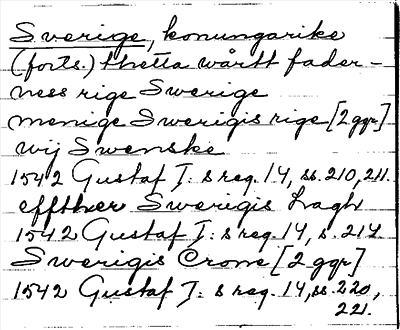 Sverige, konungarike
(forts.) thetta wårtt fader-
ness rige Swerige
menige Swerigis rige [2 ggr]
wij Swenske
1542 Gustaf I: s reg. 14, ss. 210, 211.
effther Swerigis Lagh
1542 Gustaf I: s reg. 14, s. 214.
Swerigis Crone [2 ggr]
1542 Gustaf I: s reg. 14, ss. 220,
221.